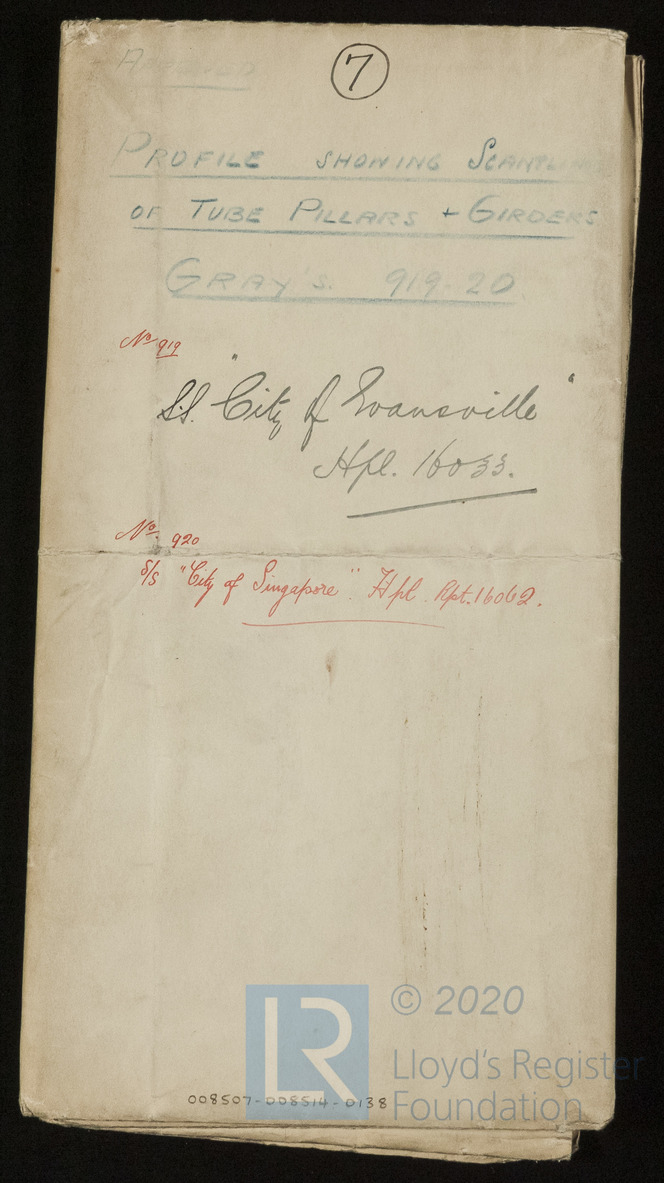 7
APPROVED
PROFILE SHOWING SCANTLINGS
OF TUBE PILLARS + GIRDERS
GRAY'S. 919-20
No 919
S.S. "City of Evansville"
Hpl. 16033.
No. 920
S/S "City of Singapore". Hpl. Rpt. 16062.
LR
© 2020
Lloyd's Register
Foundation
008507-008514-0138